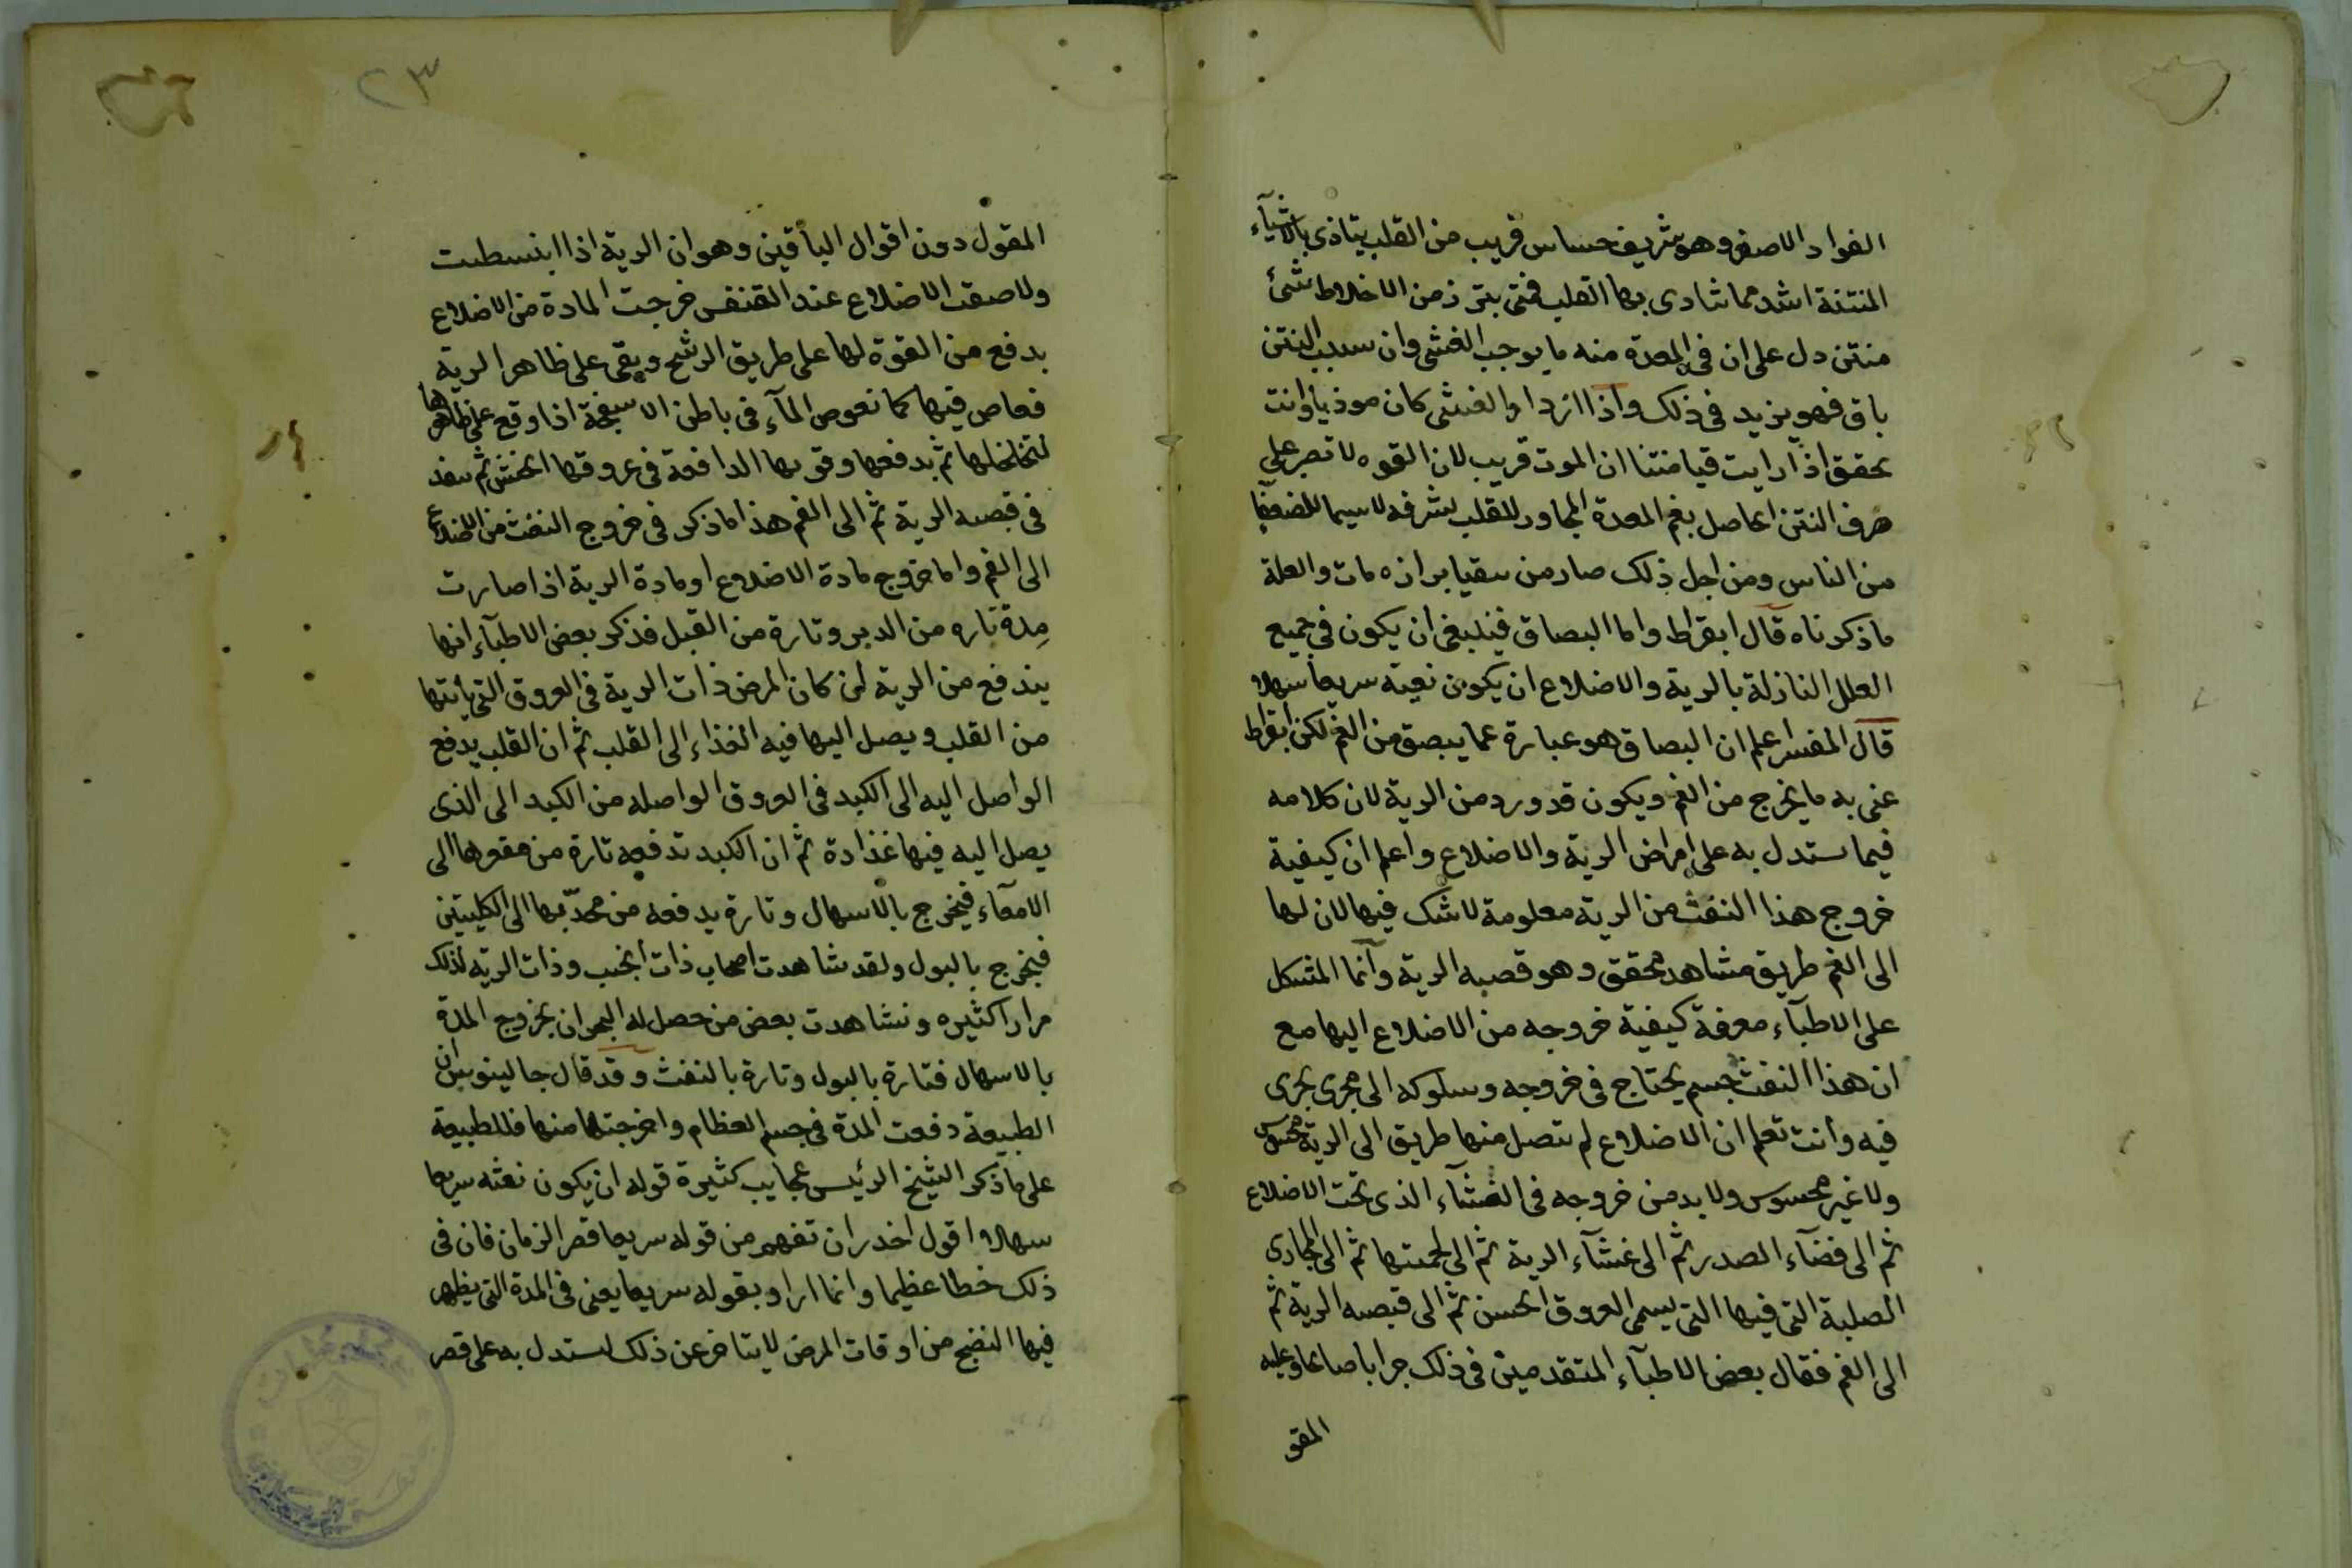 الفواد الاصغر وهو شريف حساس قريب من القلب يتاذى بالاشيآء
المنتنة اشد مما تتادى بها القلب فمتى يبرز من الاخلاط شئ
منتن دل على ان فى المعدة منه ما يوجب الغشى وان سبب النتن
باق فهو يزيد فى ذلك واذا ازداد الغشى كان موذيا وانت
تحقق اذا رايت قيا منتنا ان الموت قريب لان القوه لا تصبر على
صرف النتن الحاصل بفم المعدة المجاور للقلب لشرفه لاسيما للضعفا
من الناس ومن اجل ذلك صار من سقيا بر انه مات والعلة
ما ذكرناه قال ابقراط واما البصاق فينبغى ان يكون فى جميع
العلل النازلة بالرية والاضلاع ان يكون نفثه سريعا سهلا
قال المفسر اعلم ان البصاق هو عبارة عما يبصق من الفم لكن ابقراط
عنى به ما يخرج من الفم ويكون قد ورد من الرية لان كلامه
فيما يستدل به على امراض الرية والاضلاع واعلم ان كيفية
خروج هذا النفث من الرية معلومة لا شك فيها لان لها
الى الفم طريق مشاهد محقق وهو قصبه الرية وانما المشكل
على الاطبآء معرفة كيفية خروجه من الاضلاع اليها مع
ان هذا النفث جسم يحتاج فى خروجه وسلوكه الى مجرى يجرى
فيه وانت تعلم ان الاضلاع لم يتصل منها طريق الى الرية محسوس
ولا غير محسوس ولا بد من خروجه فى الغشآء الذى تحت الاضلاع
ثم الى فضآء الصدر ثم الى غشآء الرية ثم الى لحميتها ثم الى المجارى
الصلبة التى فيها التى يسمى العروق الخشن ثم الى قصبه الرية ثم
الى الفم فقال بعض الاطبآء المتقدمين فى ذلك جرابا صالحا وعليه
المقو
٢٣
المقول دون اقوال الباقين وهو ان الرية اذا انبسطت
ولاصقت الاضلاع عند التنفس خرجت المادة من الاضلاع
بدفع من القوة لها على طريق الرشح ويبقى على ظاهر الرية
فغاص فيها كما تغوص المآء فى باطن الاسفنجة اذا وقع على ظاهرها
لتخلخلها ثم يدفعها وقوتها الدافعة فى عروقها الخشن ثم ينفذ
فى قصبه الرية ثم الى الفم هذا ما ذكر فى خروج النفث من الاضلاع
الى الفم واما خروج مادة الاضلاع او مادة الرية اذا صارت
مدة تاره من الدبر وتارة من القبل فذكر بعض الاطبآء انها
يندفع من الرية لمن كان المرض ذات الرية فى العروق التى يأتتها
من القلب ويصل اليها فيه الغذاء الى القلب ثم ان القلب يدفع
الواصل اليه الى الكبد فى العروق الواصله من الكبد الى الذى
يصل اليه فيها غذاده ثم ان الكبد تدفعه تارة من مقعرها الى
الامعآء فيخرج بالاسهال وتارة يدفعه من محدّبها الى الكليتين
فيخرج بالبول ولقد شاهدت اصحاب ذات الجنب وذات الرية لذلك
مرارا كثيره وشاهدت بعض من حصل له البحران بخروج المدة
بالاسهال فتارة بالبول وتارة بالنفث وقد قال جالينوس ان
الطبيعة دفعت المدة فى جسم العظام واخرجتها منها فللطبيعة
على ما ذكر الشيخ الرئيس عجايب كثيرة قوله ان يكون نفثه سريعا
سهلا اقول احذر ان تفهم من قوله سريعا قصر الزمان فان فى
ذلك خطا عظيما وانما اراد بقوله سريعا يعنى فى المدة التى يظهر
فيها النضج من اوقات المرض لا يتاخر عن ذلك ليستدل به على قصر